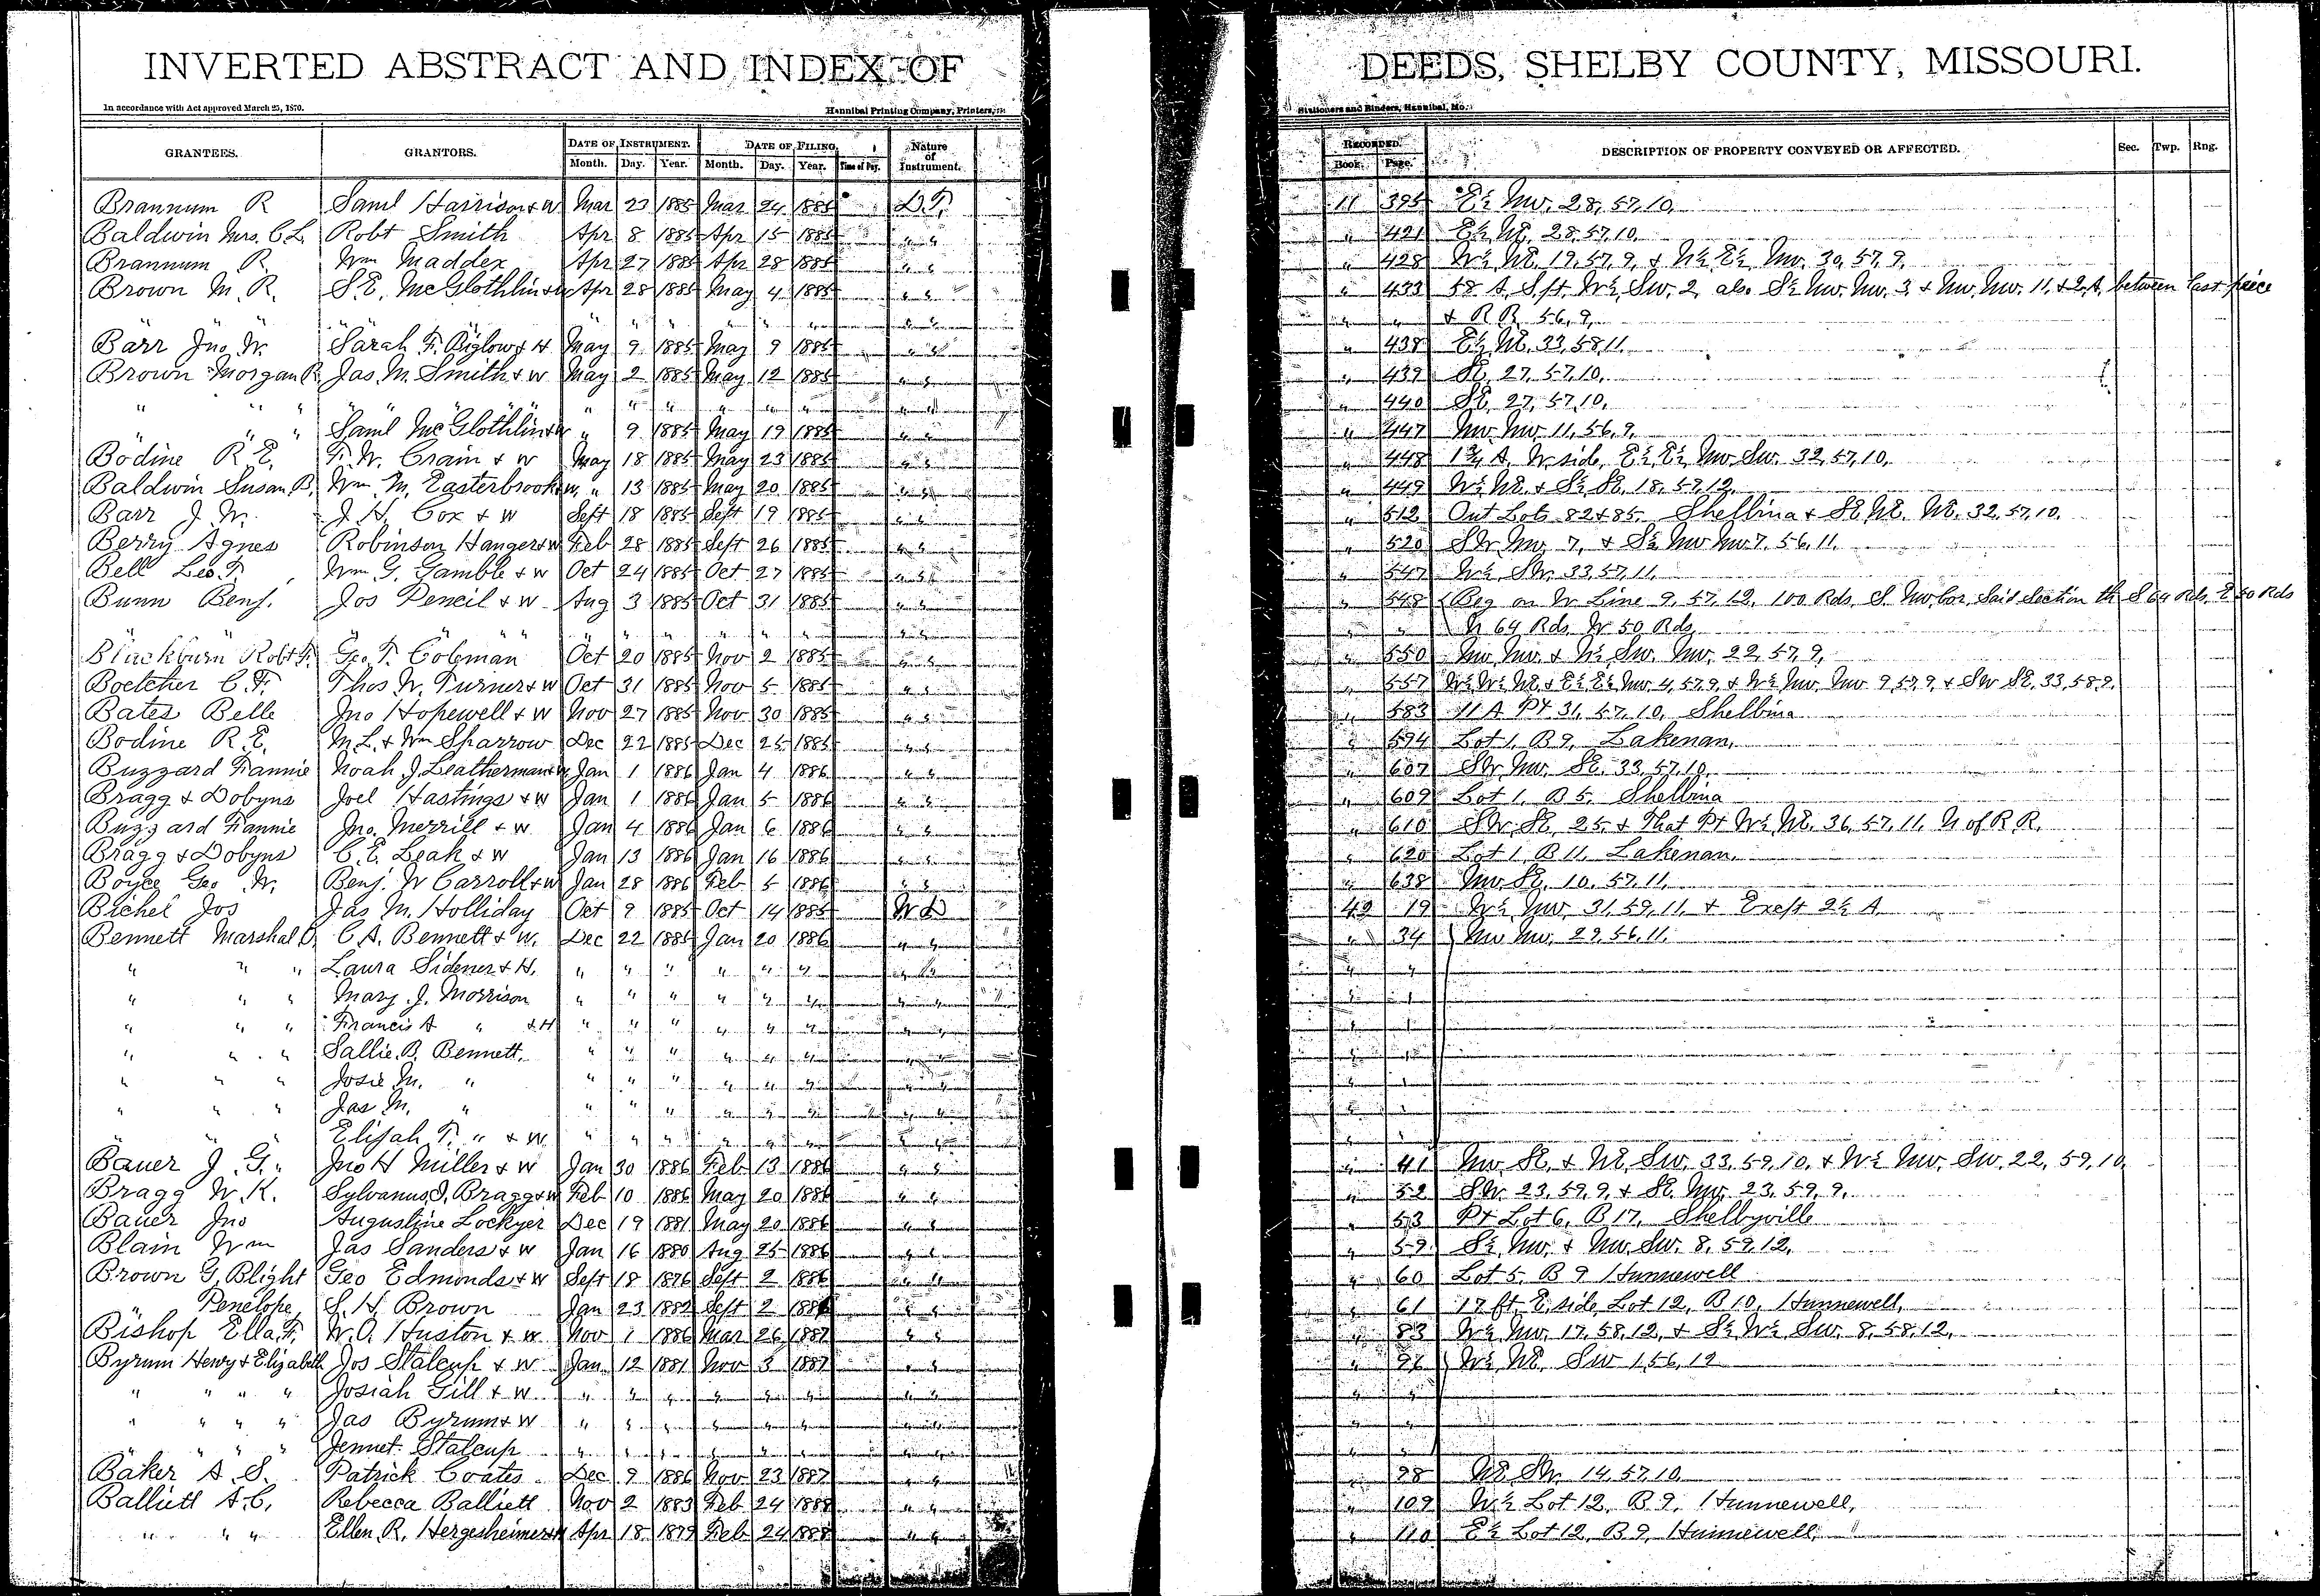 INVERTED ABSTRACT AND INDEX OF DEEDS, SHELBY COUNTY, MISSOURI.
In accordance with Act approved March 25, 1870. Hannibal Printing Company, Printers, Stationers and Binders, Hannibal, Mo.
GRANTEES. GRANTORS. DATE OF INSTRUMENT. Month. Day. Year. DATE OF FILING. Month. Day. Year. Time of Day. Nature of Instrument. RECORDED. Book. Page. DESCRIPTION OF PROPERTY CONVEYED OR AFFECTED. Sec. Twp. Rng.
Brannum R Saml Harrison & w Mar 23 1885 Mar 24 1885 D.T. 11 395 E½ Nw. 28, 57, 10,
Baldwin Mrs. C L. Robt Smith Apr 8 1885 Apr 15 1885 " " " 421 E½ NE. 28, 57, 10,
Brannum R. Wm Maddex Apr 27 1885 Apr 28 1885 " " " 428 W½ NE. 19, 57, 9, & W½ E½ Nw. 30, 57, 9,
Brown M. R. S.E. McGlothlin & w Apr 28 1885 May 4 1885 " " " 433 58 A. S. pt. W½ Sw. 2, also S½ Nw. Nw. 3, & Nw. Nw. 11, & 2 A. between last piece
" " " " " " " " & R R. 56, 9,
Barr Jno. W. Sarah F. Biglow & H May 9 1885 May 9 1885 " " " 438 E½ NE. 33, 58, 11.
Brown Morgan R. Jas. M. Smith & w May 2 1885 May 12 1885 " " " 439 SE. 27, 57, 10,
" " " " " " " " " " " " " " 440 SE. 27, 57, 10,
" " " Saml McGlothlin & w " 9 1885 May 19 1885 " " " 447 Nw. Nw. 11, 56, 9,
Bodine R E. F. W. Crain & w May 18 1885 May 23 1885 " " " 448 1¾ A. W. side, E½, E½, Nw. Sw. 32, 57, 10,
Baldwin Susan B. Wm. M. Easterbrook & w. " 13 1885 May 20 1885 " " " 449 W½ NE. & S½ SE. 18, 57, 12,
Barr J. W. J. H. Cox & w Sept 18 1885 Sept 19 1885 " " " 512 Out Lots 82 & 85, Shelbina & SE NE. NE. 32, 57, 10.
Berry Agnes Robinson Hanger & w Feb 28 1885 Sept 26 1885 " " " 520 SW Nw. 7, & S½ Nw Nw 7, 56, 11.
Bell Leo. T. Wm G. Gamble & w Oct 24 1885 Oct 27 1885 " " " 547 W½ SW. 33, 57, 11,
Bunn Benj. Jos Pencil & w Aug 3 1885 Oct 31 1885 " " " 548 Beg on W Line 9, 57, 12, 100 Rds. S. Nw. Cor. Said Section th S 64 Rds. E 50 Rds
" " " " " " " " " " " N 64 Rds. W 50 Rds.
Blackburn Robt. T. Geo. T. Coleman Oct 20 1885 Nov 2 1885 " " " 550 Nw Nw. & N½ Sw. Nw. 22, 57, 9,
Boetcher C. F. Thos W. Turner & w Oct 31 1885 Nov 5 1885 " " " 557 W½ W½ NE. & E½ E½ Nw 4, 57, 9, & W½ Nw. Nw 9, 57, 9, & SW SE. 33, 58, 9.
Bates Belle Jno Hopewell & w Nov 27 1885 Nov 30 1885 " " " 583 11 A Pt 31, 57, 10, Shelbina
Bodine R. E. M. L. & Wm Sparrow Dec 22 1885 Dec 25 1885 " " " 594 Lot 1, B 9, Lakenan,
Buzzard Fannie Noah J. Leatherman & w Jan 1 1886 Jan 4 1886 " " " 607 SW Nw. SE. 33, 57, 10,
Bragg & Dobyns Joel Hastings & w Jan 1 1886 Jan 5 1886 " " " 609 Lot 1, B 5, Shelbina
Buzzard Fannie Jno. Merrill & w Jan 4 1886 Jan 6 1886 " " " 610 SW SE. 25, & That Pt W½ NE. 36, 57, 11, N of R R.
Bragg & Dobyns C. E. Leak & w Jan 13 1886 Jan 16 1886 " " " 620 Lot 1, B 11, Lakenan,
Boyce Geo W. Benj. W Carroll & w Jan 28 1886 Feb 5 1886 " " " 638 Nw SE. 10, 57, 11,
Bichel Jos Jas M. Holliday Oct 9 1885 Oct 14 1885 W D 49 19 W½ Nw. 31, 59, 11, & Exept 2½ A
Bennett Marshal O. C. A. Bennett & w. Dec 22 1885 Jan 20 1886 " " " 34 Nw Nw. 29, 56, 11.
" " " Laura Sidener & H. " " " " " " " " " "
" " " Mary J. Morrison " " " " " " " " " "
" " " Francis A " & H " " " " " " " " " "
" " " Sallie B. Bennett. " " " " " " " " " "
" " " Josie M. " " " " " " " " " " "
" " " Jas M. " " " " " " " " " " "
" " " Elijah T. " & w " " " " " " " " " "
Bauer J. G. Jno H Miller & w Jan 30 1886 Feb 13 1886 " " " 41 Nw SE. & NE Sw. 33, 59, 10, & W½ Nw. Sw. 22, 59, 10,
Bragg W. K. Sylvanus J. Bragg & w Feb 10 1886 May 20 1886 " " " 52 SW. 23, 59, 9, & SE. Nw. 23, 59, 9.
Bauer Jno Augustine Lockyer Dec 19 1881 May 20 1886 " " " 53 Pt Lot 6, B 17, Shelbyville
Blain Wm Jas Sanders & w Jan 16 1880 Aug 25 1886 " " " 59 S½ Nw. & Nw. Sw. 8, 59, 12,
Brown G. Blight Geo Edmonds & w Sept 18 1876 Sept 2 1886 " " " 60 Lot 5, B 9 Hunnewell
" Penelope, S. H. Brown Jan 23 1882 Sept 2 1886 " " " 61 17 ft. E. side, Lot 12, B 10, Hunnewell,
Bishop Ella F. W. O. Huston & w Nov 1 1886 Mar 26 1887 " " " 83 W½ Nw. 17, 58, 12, & S½ W½ Sw. 8, 58, 12,
Byrum Henry & Elizabeth Jos Stalcup & w Jan 12 1881 Nov 3 1887 " " " 96 W½ NE. Sw 1, 56, 12
" " " " Josiah Gill & w " " " " " " " " " "
" " " " Jas Byrum & w " " " " " " " " " "
" " " " Jennet Stalcup " " " " " " " " " "
Baker A. S. Patrick Coates Dec 9 1886 Nov 23 1887 " " " 98 NE. SW. 14, 57, 10
Balliett A. C. Rebecca Balliett Nov 2 1883 Feb 24 1888 " " " 109 W½ Lot 12, B 9, Hunnewell,
" " " Ellen R. Hergesheimer & H Apr 18 1879 Feb 24 1888 " " " 110 E½ Lot 12, B 9, Hunnewell,